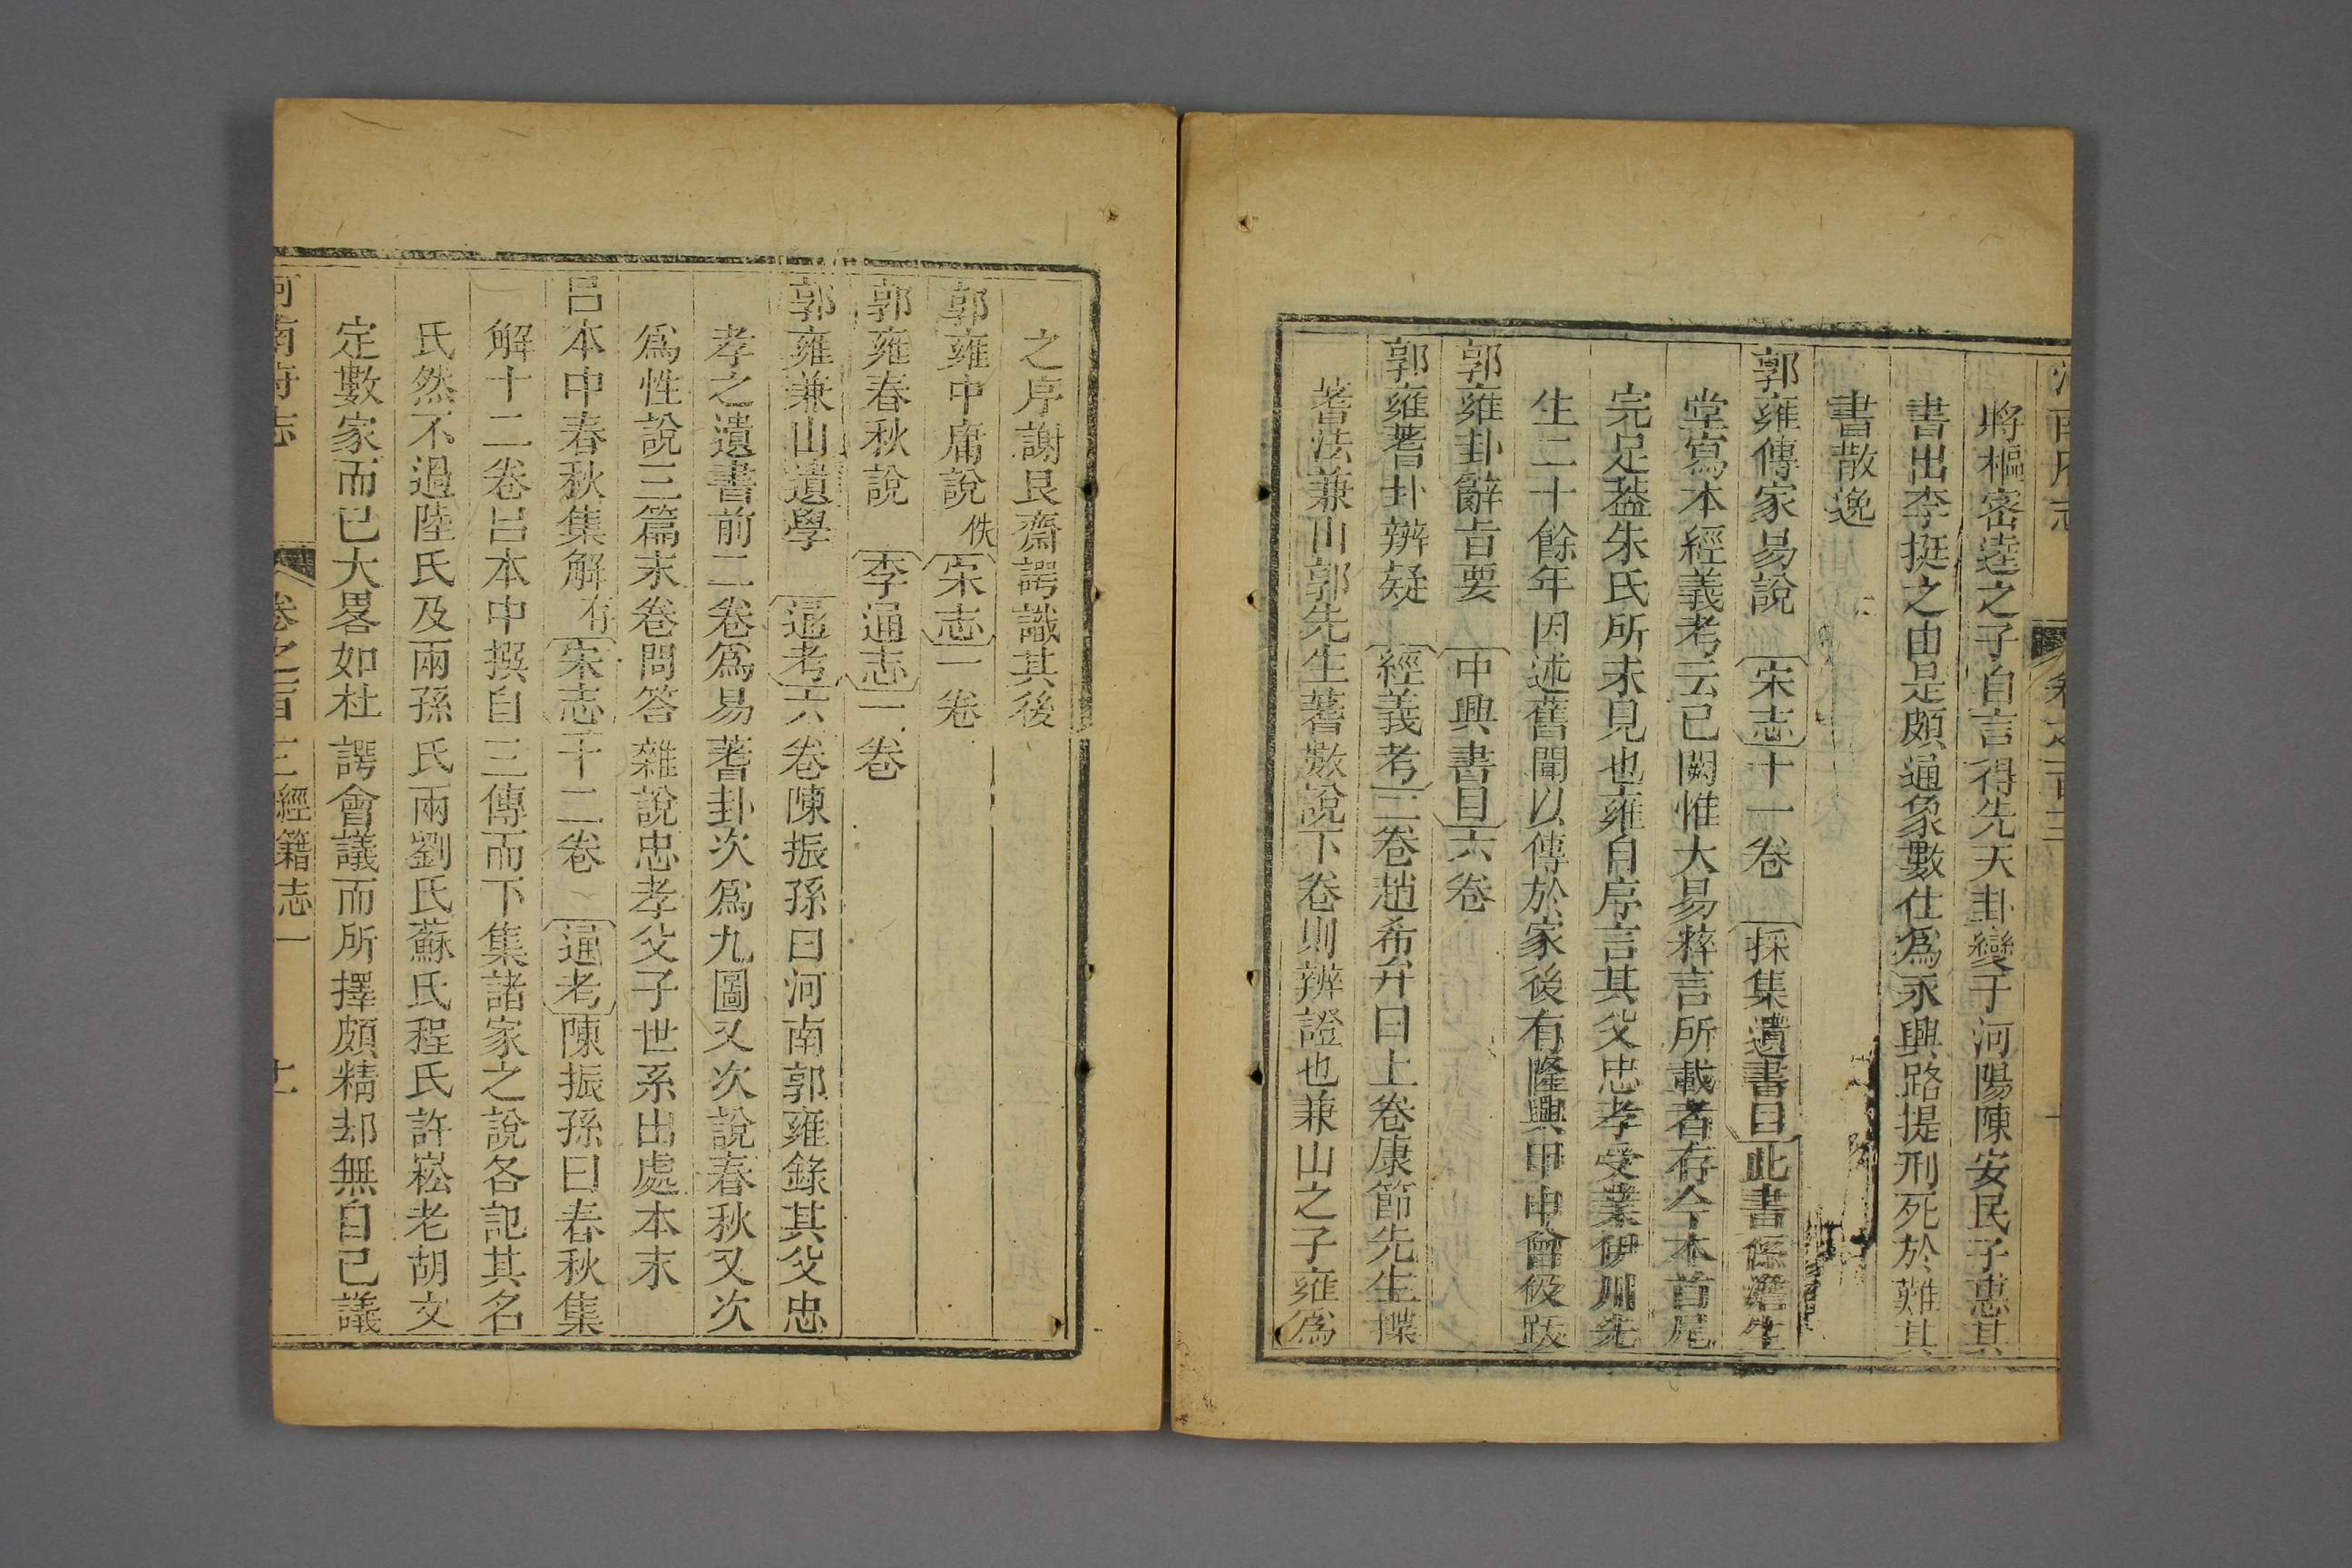 將樞密逵之子自言得先天卦變于河陽陳安民子惠其
書出李挺之由是頗通象數仕爲永興路提刑死於難其
書散逸
郭雍傳家易說 宋志十一卷 採集遺書目此書係澹生
堂寫本經義考云已闕惟大易粹言所載者存今本首尾
完足葢朱氏所未見也雍自序言其父忠孝受業伊川先
生二十餘年因述舊聞以傳於家後有隆興甲申曾伋跋
郭雍卦辭㫖要 中興書目六卷
郭雍蓍卦辨疑 經義考二卷趙希弁曰上卷康節先生揲
蓍法兼山郭先生蓍數說下卷則辨證也兼山之子雍爲
之序謝艮齋諤識其後
郭雍中庸說 佚 宋志一卷
郭雍春秋說 李通志一卷
郭雍兼山遺學 通考六卷陳振孫曰河南郭雍錄其父忠
孝之遺書前二卷爲易蓍卦次爲九圖又次說春秋又次
爲性說三篇末卷問答雜說忠孝父子世系出處本末
呂本中春秋集解 存 宋志十二卷 通考陳振孫曰春秋集
解十二卷呂本中撰自三傳而下集諸家之說各記其名
氏然不過陸氏及兩孫氏兩劉氏蘇氏程氏許崧老胡文
定數家而已大畧如杜諤會議而所擇頗精却無自己議
河南府志 卷之百三經籍志一 十一